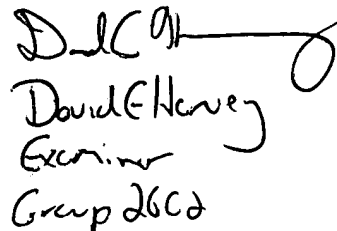 David E Harvey
Examiner
Group 2602